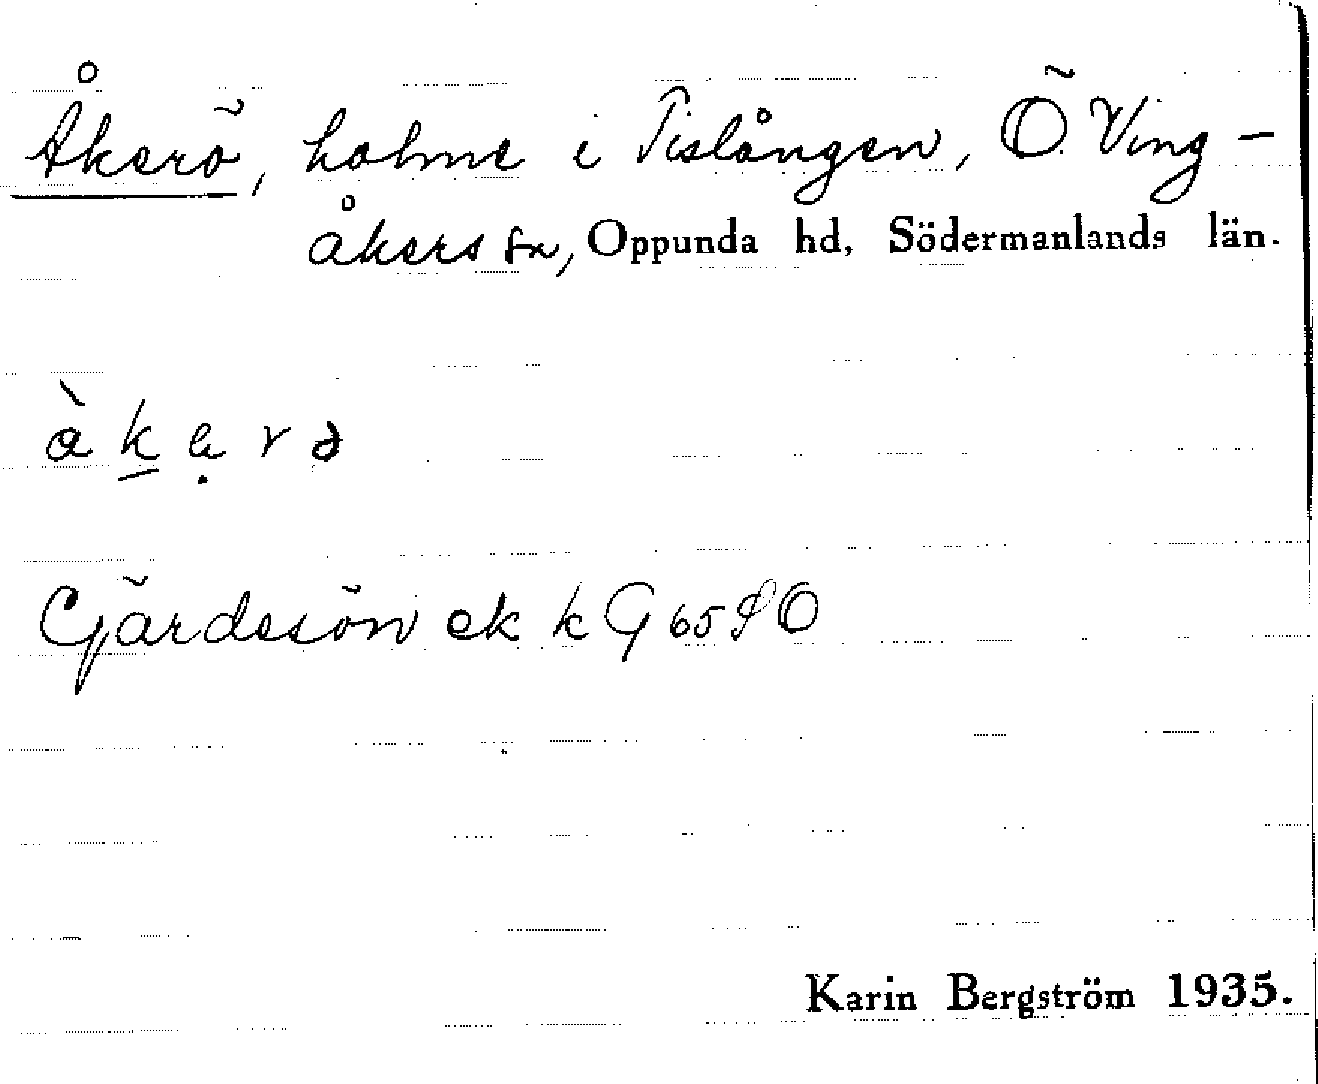 Åkerö, holme i Tislången, Ö. Ving-
åkers sn, Oppunda hd, Södermanlands län.
àkẹrə
Gjärdesön ek k G 65 SO
Karin Bergström 1935.